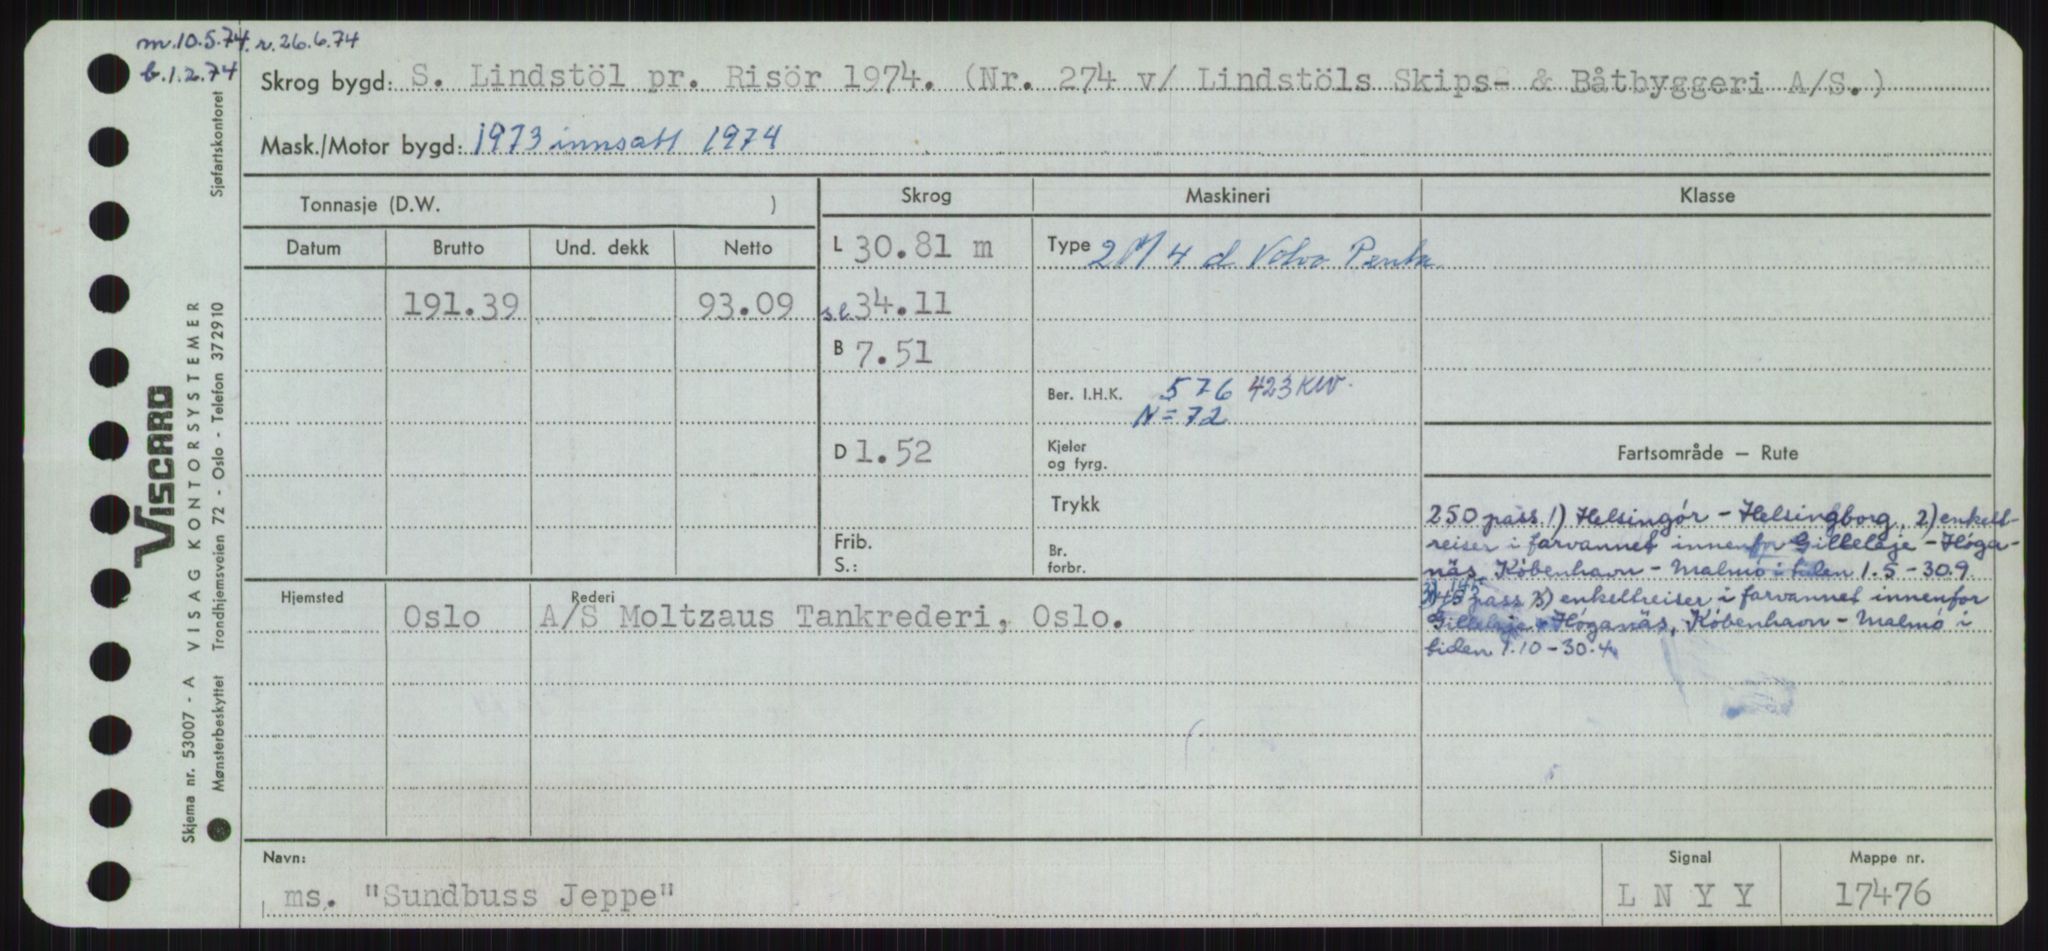 m.10.5.74. r.26.6.74
b.1.2.74
Skrog bygd: S. Lindstöl pr. Risör 1974. (Nr. 274 v/ Lindstöls Skips- & Båtbyggeri A/S.)
Mask./Motor bygd: 1973 innsatt 1974
Tonnasje (D.W. )
Skrog
Maskineri
Klasse
Datum
Brutto
Und. dekk
Netto
L 30.81 m
Type 2 4 d Volvo Penta
191.39
93.09
s.l. 34.11
B 7.51
Ber. I.H.K. 576 423 KW.
N = 72
D 1.52
Kjeler
og fyrg.
Trykk
Frib.
S.:
Br.
forbr.
Fartsområde – Rute
250 pass. 1) Helsingör - Helsingborg, 2) enkelt-
reiser i farvannet innenfor Gilleleje - Höga-
näs, Köbenhavn - Malmö i tiden 1.5 - 30.9
pass 3) enkeltreiser i farvannet innenfor
Gilleleje - Höganäs, Köbenhavn - Malmö i
tiden 1.10 - 30.4.
Hjemsted
Oslo
Rederi
A/S Moltzaus Tankrederi, Oslo.
Navn:
ms. "Sundbuss Jeppe"
Signal
L N Y Y
Mappe nr.
17476
VISCARD
Skjema nr. 53007 - A VISAG KONTORSYSTEMER
Mønsterbeskyttet Trondhjemsveien 72 - Oslo - Telefon 372910
Sjøfartskontoret